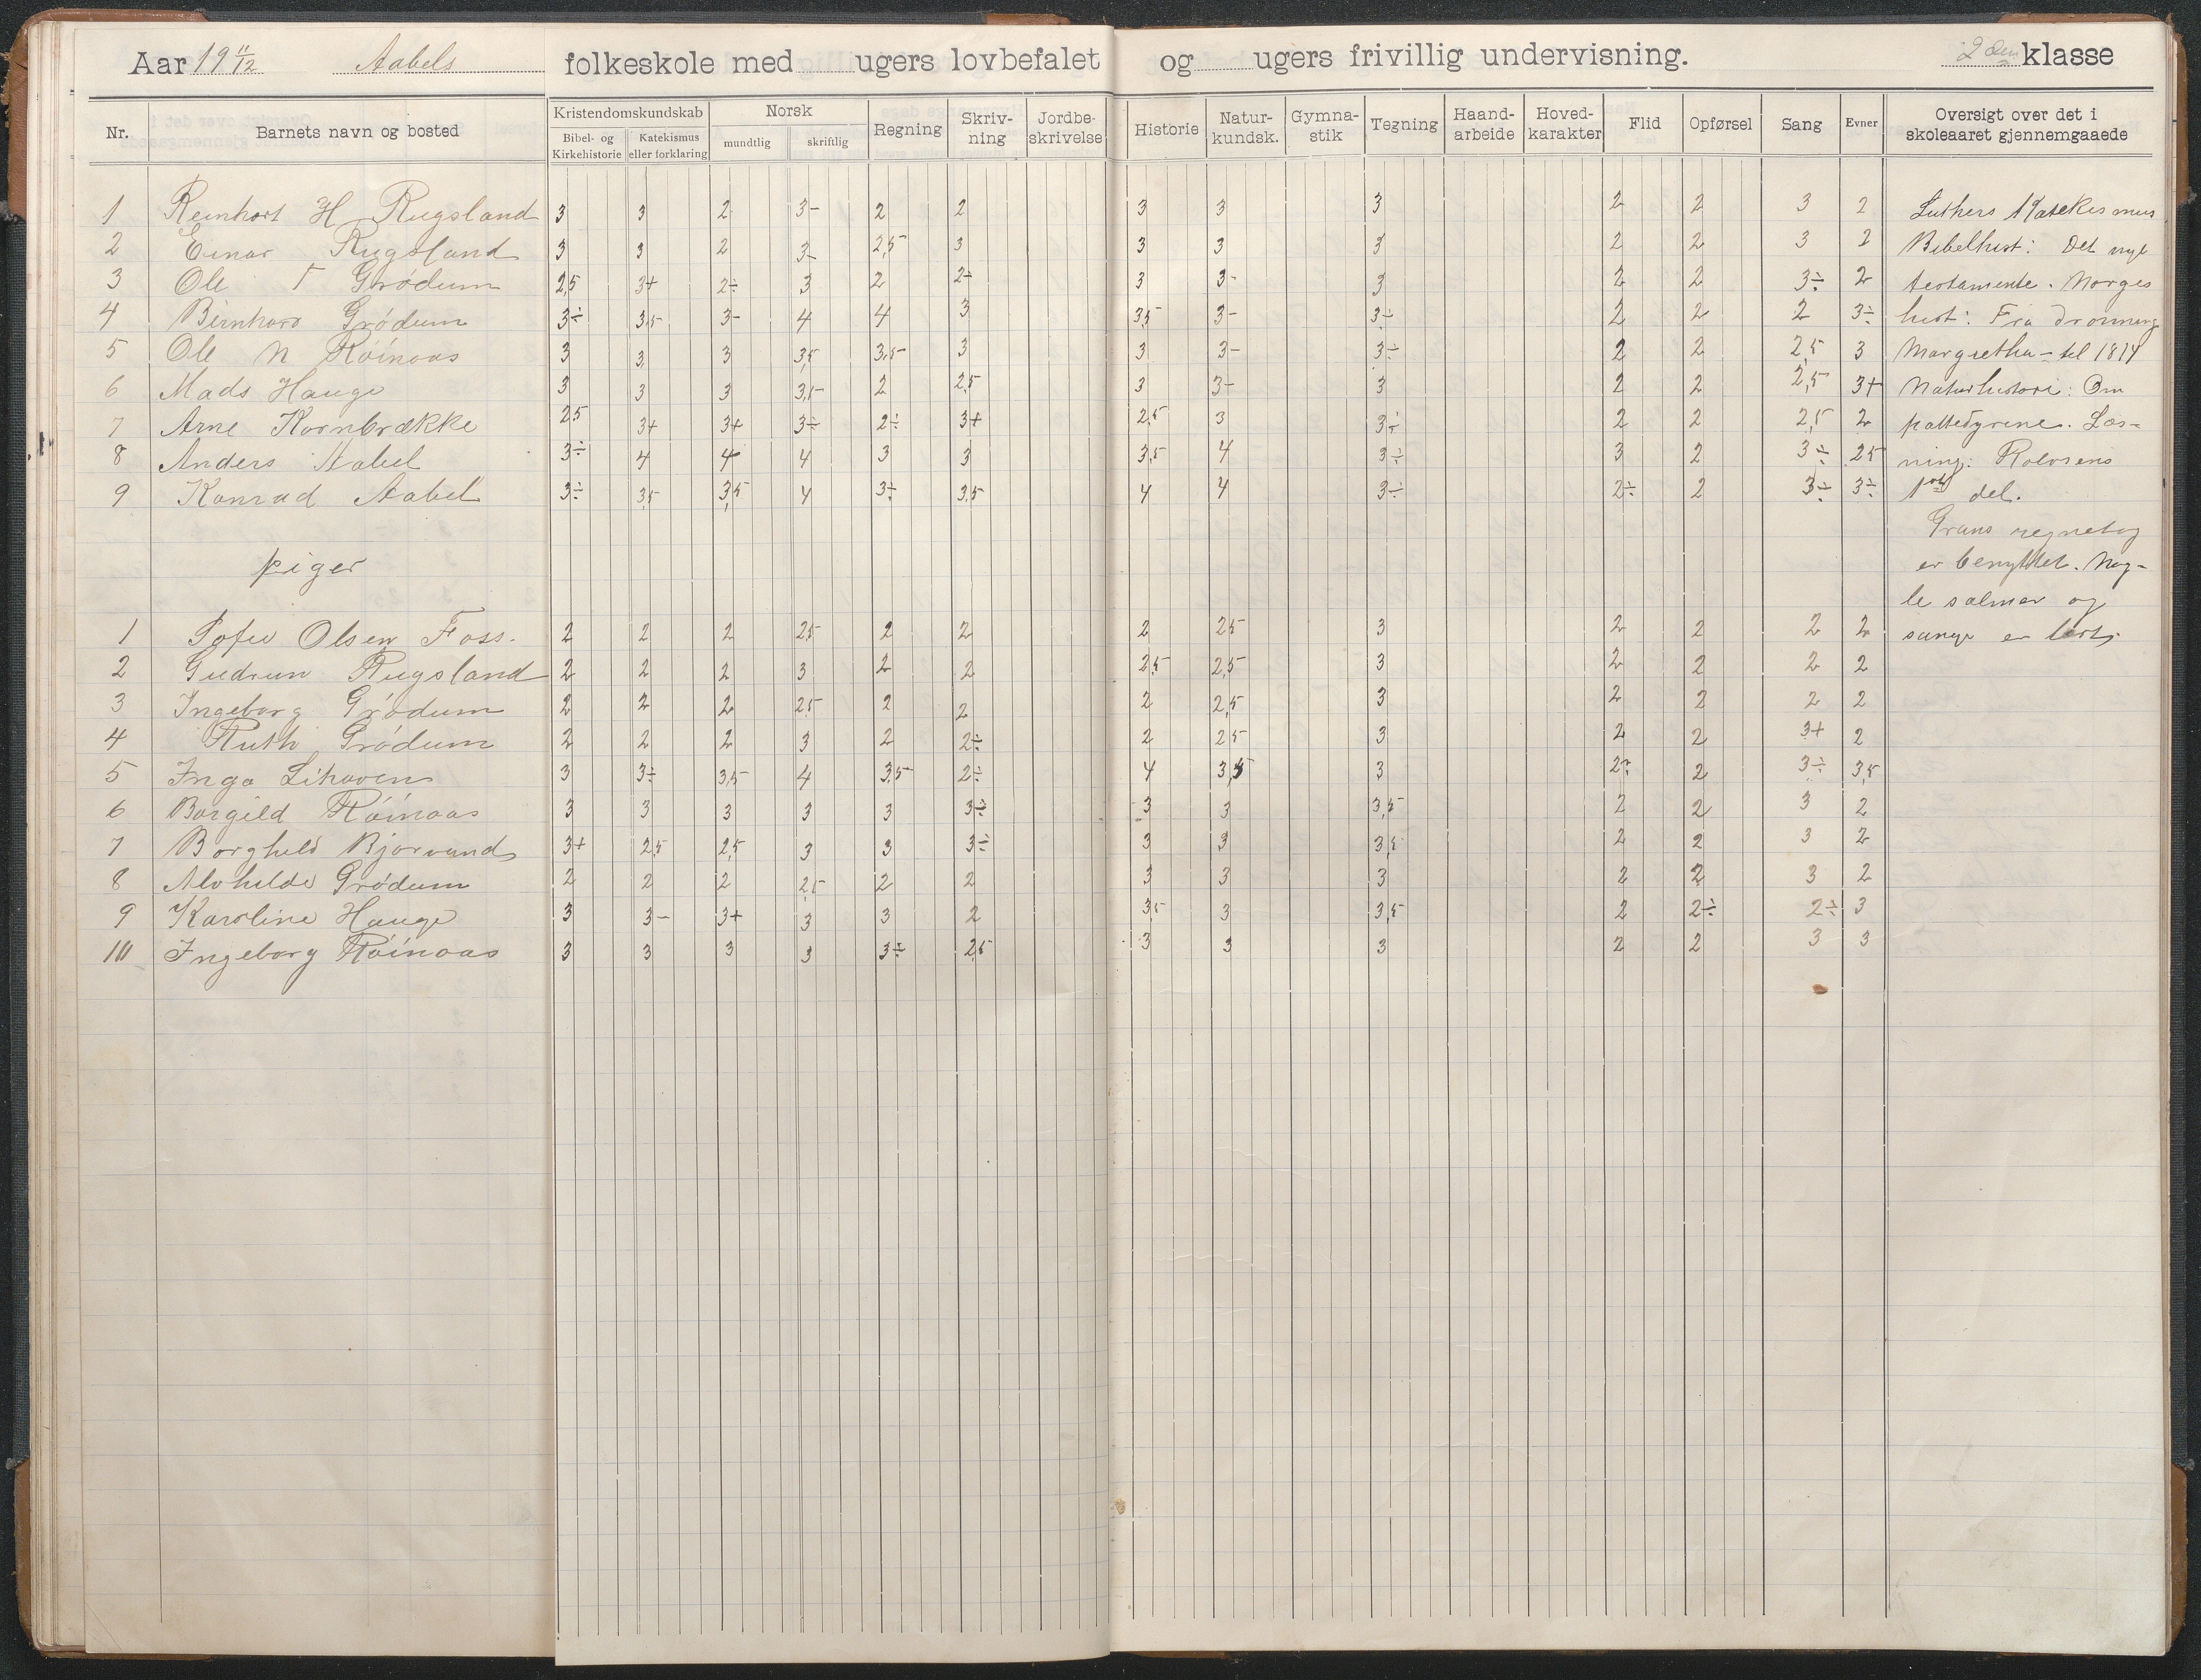 Aar 19 11/12 Aabels folkeskole med ugers lovbefalet og ugers frivillig undervisning. 2den klasse
Nr. Barnets navn og bosted Kristendomskundskab Norsk Regning Skriv-ning Jordbe-skrivelse Historie Natur-kundsk. Gymna-stik Tegning Haand-arbeide Hoved-karakter Flid Opførsel Sang Evner Oversigt over det i skoleaaret gjennemgaaede
Bibel- og Kirkehistorie Katekismus eller forklaring mundtlig skriftlig
1 Reinhart H Rugsland 3 3 2 3- 2 2 3 3 3 2 2 3 2 Luthers Katekismus
2 Einar Rugsland 3 3 2 3- 2,5 3 3 3 3 2 2 3 2 Bibelhist: Det nye
3 Ole T Grødum 2,5 3+ 2÷ 3 2 2÷ 3 3- 3 2 2 3÷ 2 testamente. Norges
4 Bernhard Grødum 3÷ 3,5 3- 4 4 3 3,5 3- 3÷ 2 2 2 3÷ hist: Fra dronning
5 Ole N Røinaas 3 3 3 3,5 3,5 3 3 3- 3÷ 2 2 2,5 3 Margretha - til 1814
6 Mads Hauge 3 3 3 3,5 2 2,5 3 3- 3 2 2 2,5 3+ Naturhistorie: Om
7 Arne Kornbrække 2,5 3+ 3+ 3÷ 2÷ 3+ 2,5 3 3÷ 2 2 2,5 2 pattedyrene. Læs-
8 Anders Aabel 3÷ 4 4 4 3 3 3,5 4 3÷ 3 2 3÷ 2,5 ning: Rolvsens
9 Konrad Aabel 3÷ 3,5 3,5 4 3÷ 3,5 4 4 3÷ 2÷ 2 3÷ 3÷ 1ste del.
Grans regnebog
piger er benyttet. Nog-
le salmer og
1 Sofie Olsen Foss. 2 2 2 2,5 2 2 2 2,5 3 2 2 2 2 sange er lært.
2 Gudrun Rugsland 2 2 2 3 2 2 2,5 2,5 3 2 2 2 2
3 Ingeborg Grødum 2 2 2 2,5 2 2 2 2,5 3 2 2 2 2
4 Ruth Grødum 2 2 2 3 2 2÷ 2 2,5 3 2 2 3+ 2
5 Inga Lihaven 3 3÷ 3,5 4 3,5 2÷ 4 3,5 3 2÷ 2 3÷ 3,5
6 Borgild Røinaas 3 3 3 3 3 3÷ 3 3 3,5 2 2 3 2
7 Borghild Bjorvand 3+ 2,5 2,5 3 3 3÷ 3 3 3,5 2 2 3 2
8 Alvhilde Grødum 2 2 2 2,5 2 2 3 3 3 2 2 3 2
9 Karoline Hauge 3 3- 3+ 3 3 2 3,5 3 3,5 2 2÷ 2÷ 3
10 Ingeborg Røinaas 3 3 3 3 3÷ 2,5 3 3 3 2 2 3 3